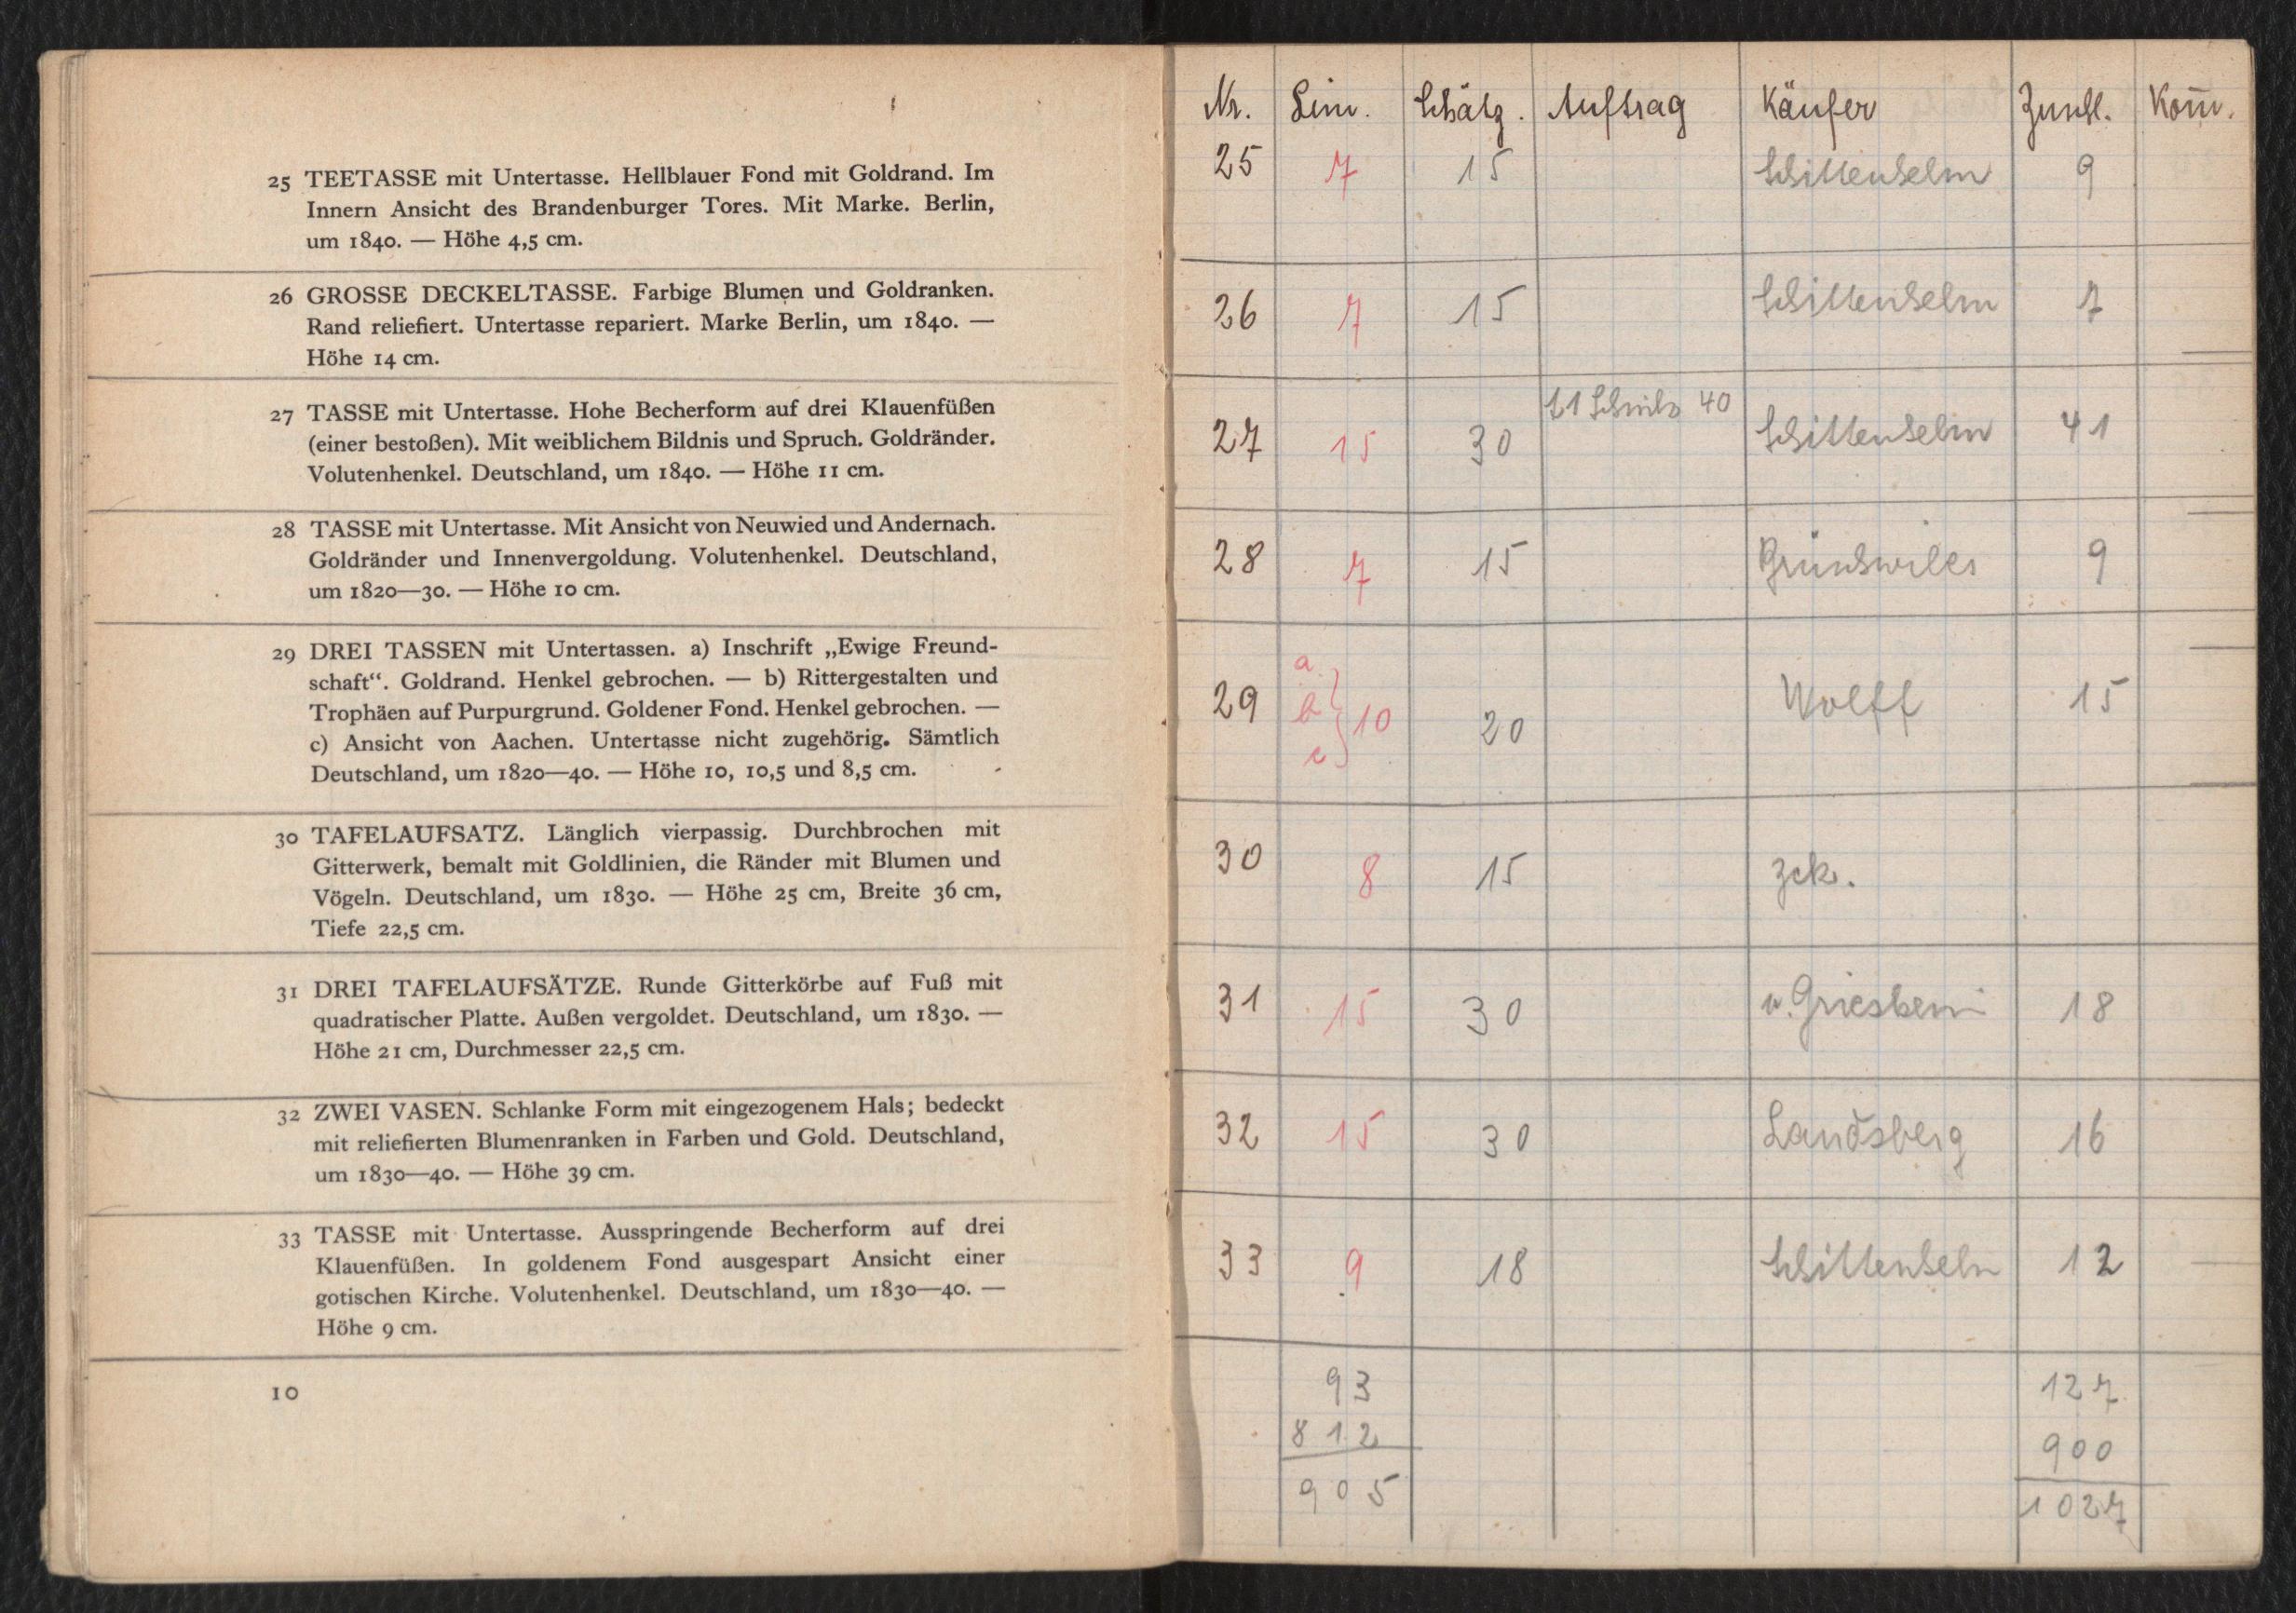 25 TEETASSE mit Untertasse. Hellblauer Fond mit Goldrand. Im
Innern Ansicht des Brandenburger Tores. Mit Marke. Berlin,
um 1840. — Höhe 4,5 cm.
26 GROSSE DECKELTASSE. Farbige Blumen und Goldranken.
Rand reliefiert. Untertasse repariert. Marke Berlin, um 1840. —
Höhe 14 cm.
27 TASSE mit Untertasse. Hohe Becherform auf drei Klauenfüßen
(einer bestoßen). Mit weiblichem Bildnis und Spruch. Goldränder.
Volutenhenkel. Deutschland, um 1840. — Höhe 11 cm.
28 TASSE mit Untertasse. Mit Ansicht von Neuwied und Andernach.
Goldränder und Innenvergoldung. Volutenhenkel. Deutschland,
um 1820—30. — Höhe 10 cm.
29 DREI TASSEN mit Untertassen. a) Inschrift „Ewige Freund-
schaft“. Goldrand. Henkel gebrochen. — b) Rittergestalten und
Trophäen auf Purpurgrund. Goldener Fond. Henkel gebrochen. —
c) Ansicht von Aachen. Untertasse nicht zugehörig. Sämtlich
Deutschland, um 1820—40. — Höhe 10, 10,5 und 8,5 cm.
30 TAFELAUFSATZ. Länglich vierpassig. Durchbrochen mit
Gitterwerk, bemalt mit Goldlinien, die Ränder mit Blumen und
Vögeln. Deutschland, um 1830. — Höhe 25 cm, Breite 36 cm,
Tiefe 22,5 cm.
31 DREI TAFELAUFSÄTZE. Runde Gitterkörbe auf Fuß mit
quadratischer Platte. Außen vergoldet. Deutschland, um 1830. —
Höhe 21 cm, Durchmesser 22,5 cm.
32 ZWEI VASEN. Schlanke Form mit eingezogenem Hals; bedeckt
mit reliefierten Blumenranken in Farben und Gold. Deutschland,
um 1830—40. — Höhe 39 cm.
33 TASSE mit Untertasse. Ausspringende Becherform auf drei
Klauenfüßen. In goldenem Fond ausgespart Ansicht einer
gotischen Kirche. Volutenhenkel. Deutschland, um 1830—40. —
Höhe 9 cm.
10
Nr. Lim. Schätz. Auftrag Käufer Zuschl. Kom̅.
25 7 15 Schittenhelm 9
26 7 15 Schittenhelm 7
40
27 15 30 Schittenhelm 41
28 7 15 9
a
29 b 10 20 Wolff 15
c
30 8 15 zck.
31 15 30 18
32 15 30 Landsberg 16
33 9 18 Schittenhelm 12
93 127
812 900
905 1027